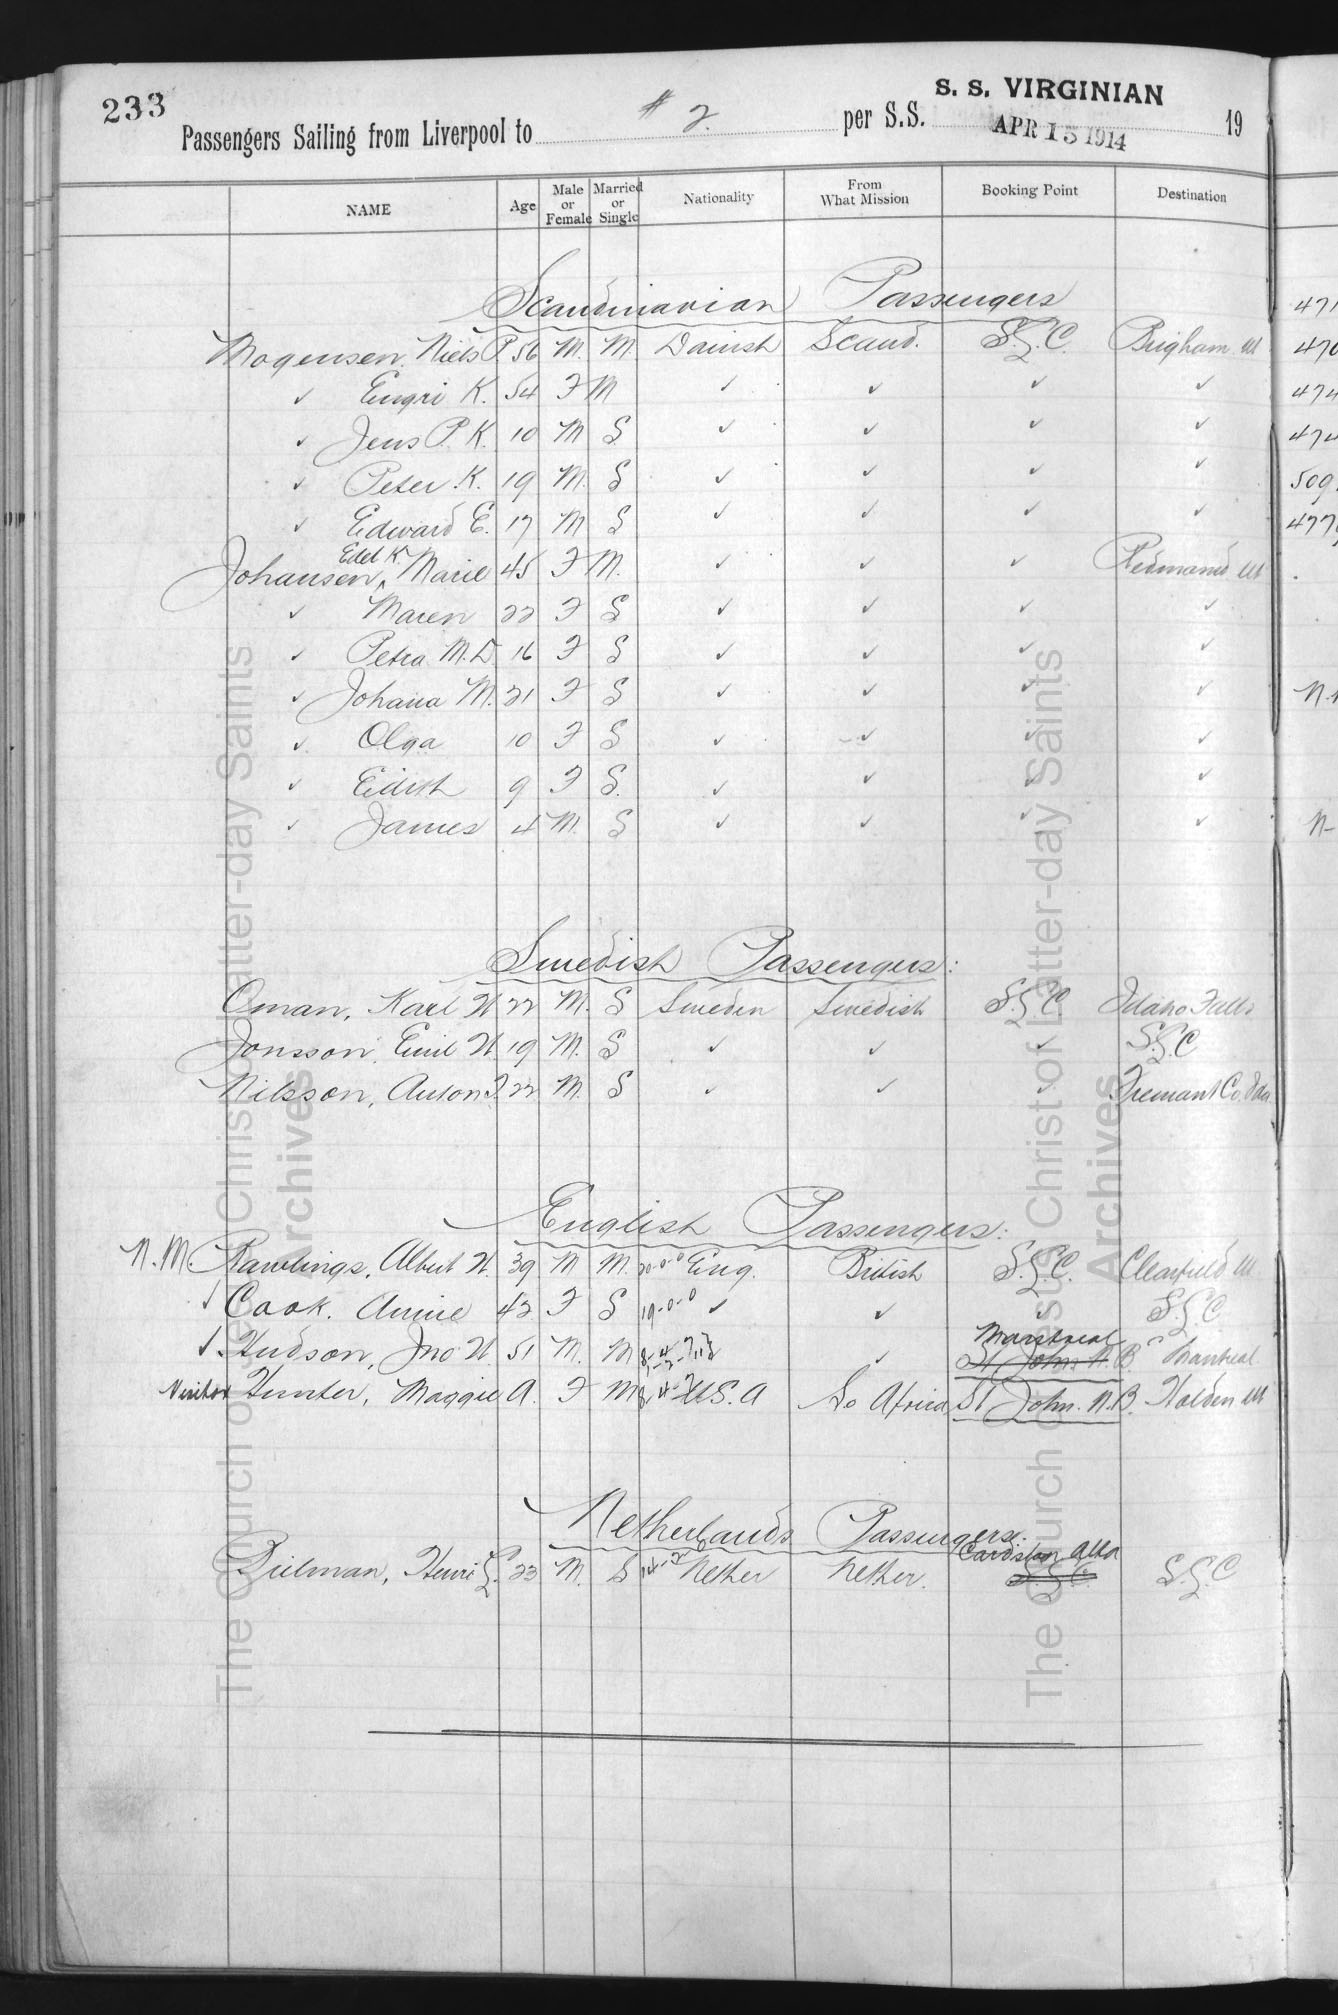 233
S. S. VIRGINIAN
Passengers Sailing from Liverpool to # 2. per S.S. APR 13 1914 19
NAME Age Male or Female Married or Single Nationality From What Mission Booking Point Destination
Scandinavian Passengers
Mogensen, Niels P. 56 M. M. Danish Scand. S.L.C. Brigham Ut
✓ Engri K. 54 F M ✓ ✓ ✓ ✓
✓ Jens P. K. 10 M S ✓ ✓ ✓ ✓
✓ Peter K. 19 M. S ✓ ✓ ✓ ✓
✓ Edward E. 17 M S ✓ ✓ ✓ ✓
Johansen, Edel K. Marie 45 F M. ✓ ✓ ✓ Redmond Ut
✓ Maren 22 F S ✓ ✓ ✓ ✓
✓ Petra M.D. 16 F S ✓ ✓ ✓ ✓
✓ Johana M. 21 F S ✓ ✓ ✓ ✓
✓ Olga 10 F S ✓ ✓ ✓ ✓
✓ Edith 9 F S. ✓ ✓ ✓ ✓
✓ James 4 M. S ✓ ✓ ✓ ✓
Swedish Passengers:
Oman, Karl H 22 M. S Sweden Swedish S.L.C. Idaho Falls
Jonsson, Emil H. 19 M. S ✓ ✓ ✓ S.L.C
Nilsson, Anton F. 22 M. S ✓ ✓ ✓ Fremant Co. Ida
English Passengers:
N. M. Rawlings, Albert H. 39 M M. 20-0-0 Eng. British S.L.C. Clearfield Ut
✓ Cook. Annie 42 F S 19-0-0 ✓ ✓ ✓ S.L.C.
✓ Hudson, Jno H. 51 M. M ✓ Montreal St John N.B. Montreal
Visitor Hunter, Maggie A. F M 8-4- U.S.A So Africa St John. N.B. Holden Ut
Netherlands Passengers:
Dielman, Henri L. 23 M. S 14-2 Nether Nether. Cardston Alta S.L.C. S.L.C
The Church of Jesus Christ of Latter-day Saints
Archives
The Church of Jesus Christ of Latter-day Saints
Archives